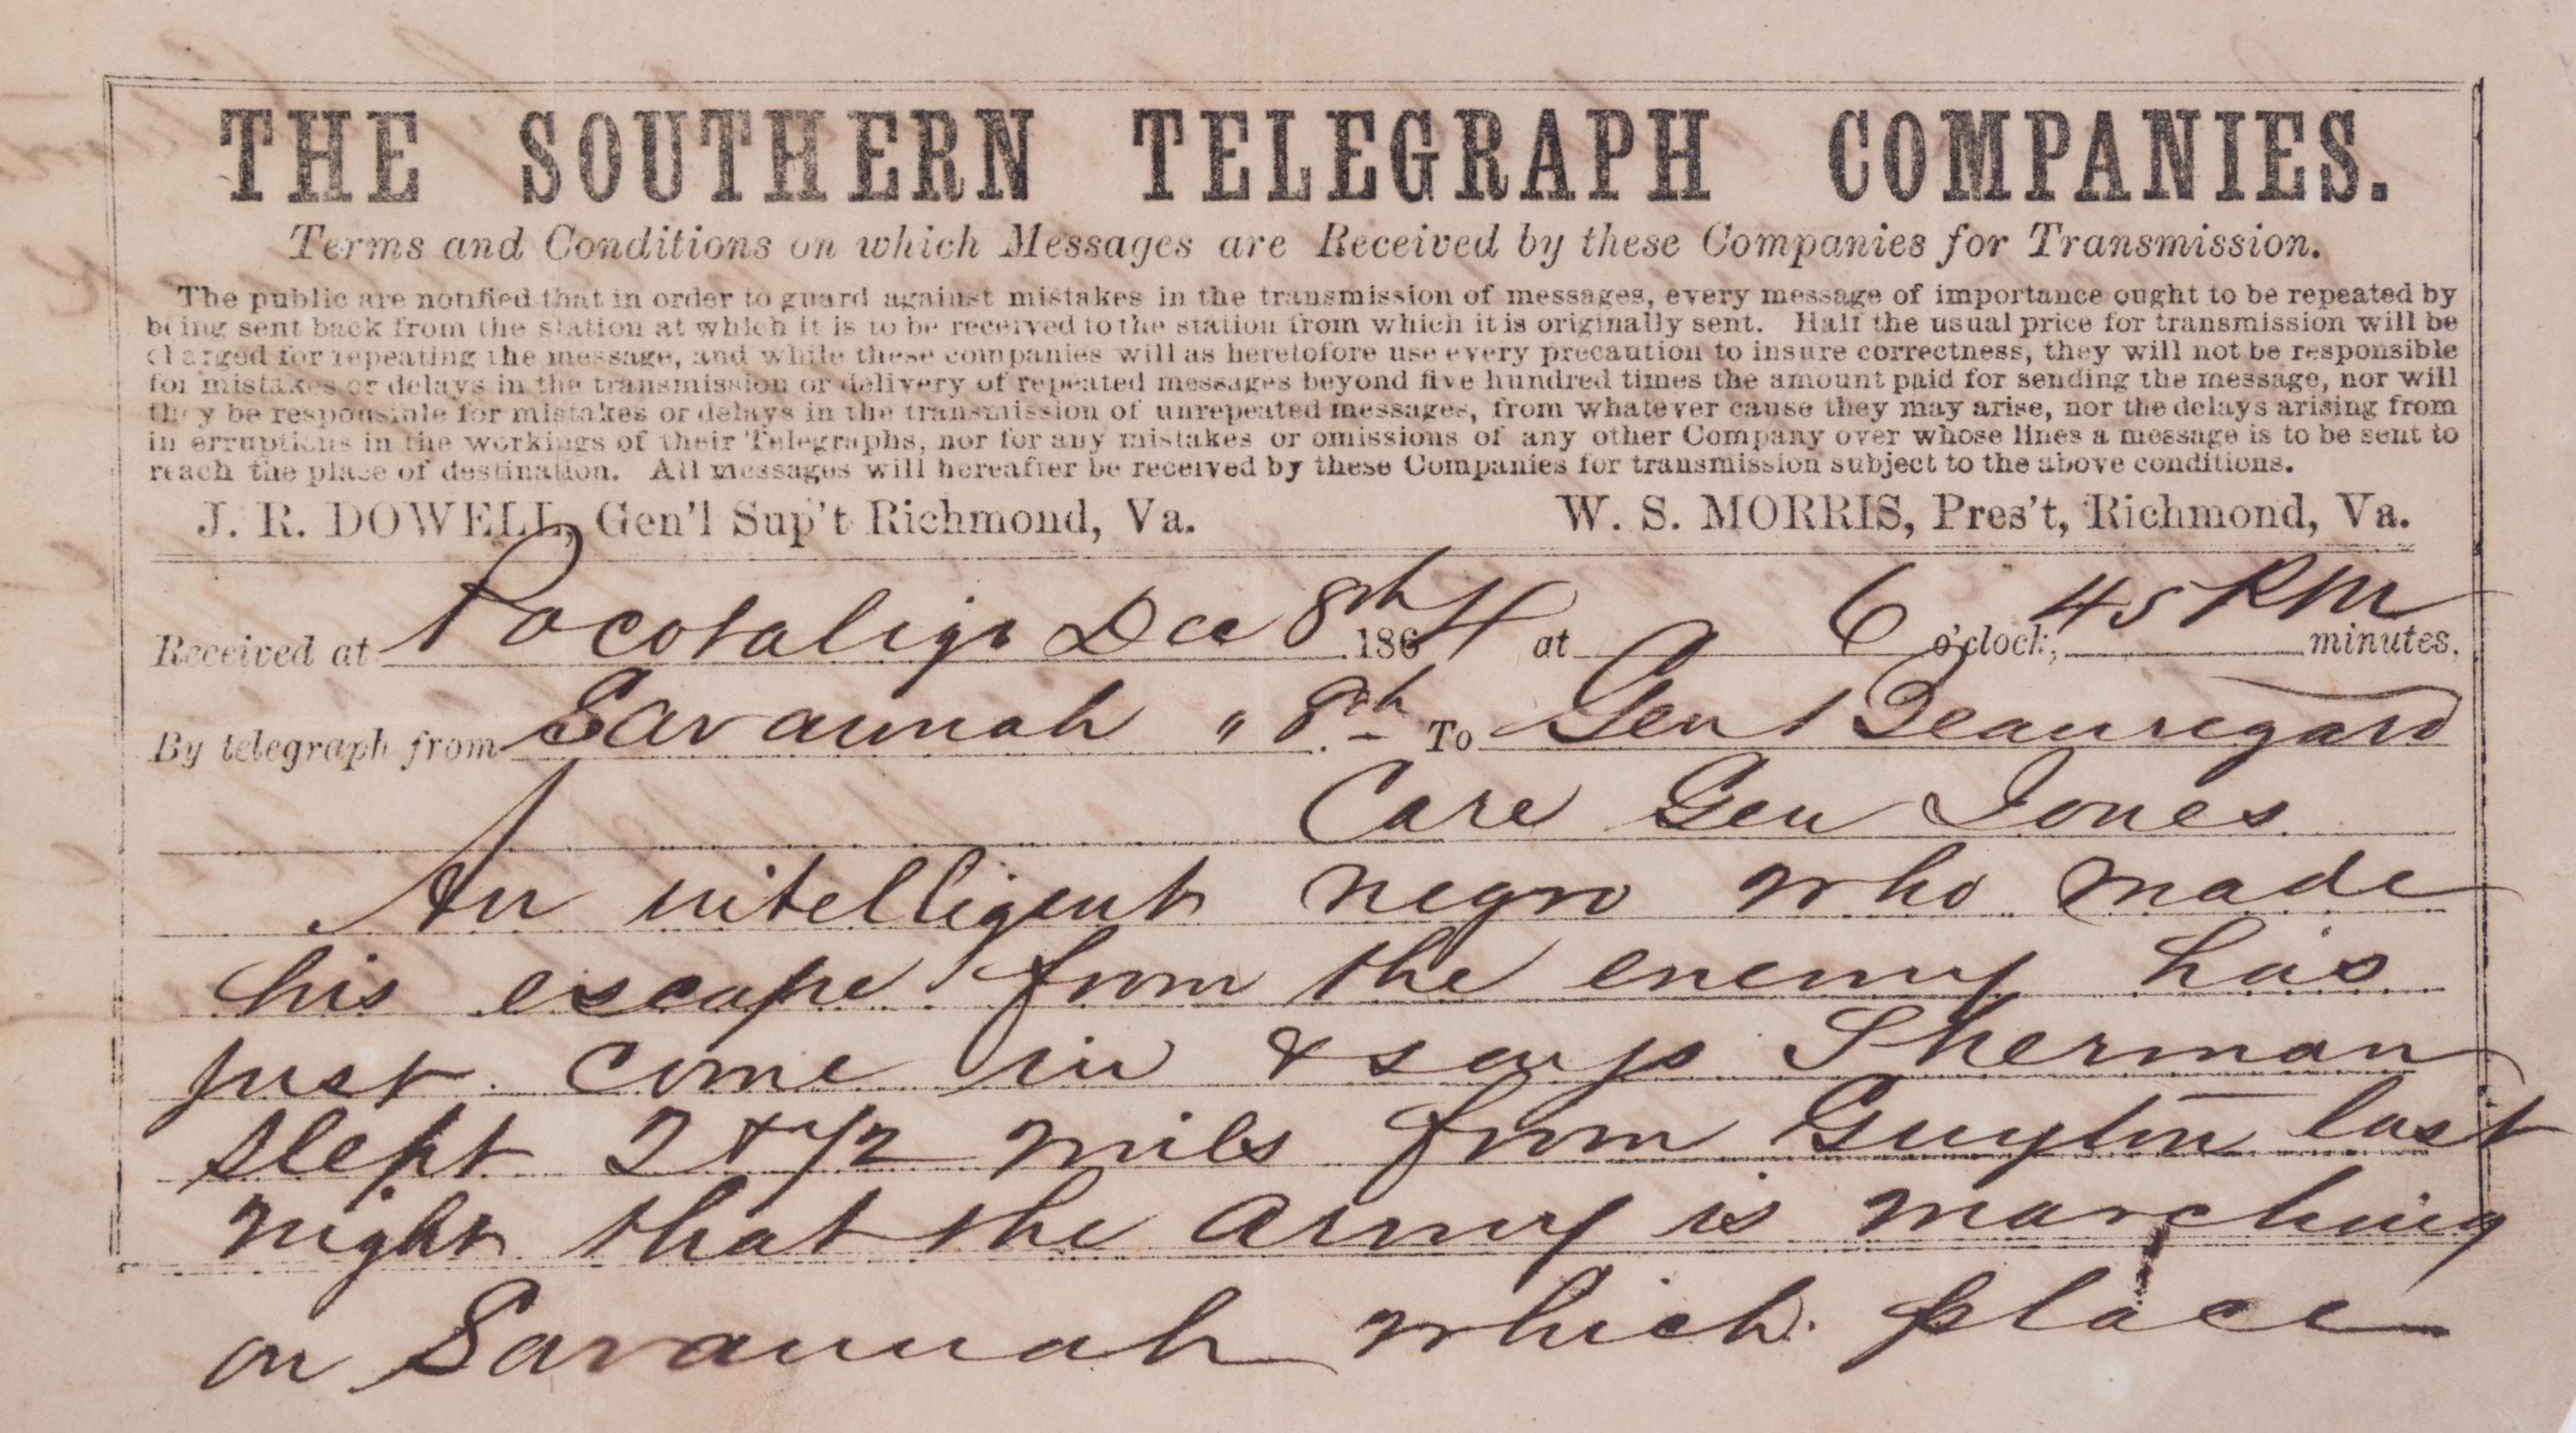 THE SOUTHERN TELEGRAPH COMPANIES.
Terms and Conditions on which Messages are Received by these Companies for Transmission.
The public are notified that in order to guard against mistakes in the transmission of messages, every message of importance ought to be repeated by
being sent back from the station at which it is to be received to the station from which it is originally sent. Half the usual price for transmission will be
charged for repeating the message, and while these companies will as heretofore use every precaution to insure correctness, they will not be responsible
for mistakes or delays in the transmission or delivery of repeated messages beyond five hundred times the amount paid for sending the message, nor will
they be responsible for mistakes or delays in the transmission of unrepeated messages, from whatever cause they may arise, nor the delays arising from
in erruptions in the workings of their Telegraphs, nor for any mistakes or omissions of any other Company over whose lines a message is to be sent to
reach the place of destination. All messages will hereafter be received by these Companies for transmission subject to the above conditions.
J. R. DOWELL, Gen'l Sup't Richmond, Va. W. S. MORRIS, Pres't, Richmond, Va.
Received at Pocotaligo Dec 8th 1864 at 6 o'clock, 45 PM minutes,
By telegraph from Savannah " 8th To Genl Beauregard
Care Gen Jones
An intelligent negro who made
his escape from the enemy has
just come in & says Sherman
slept 2 & 1/2 mils from Guyton last
night that the army is marching
on Savannah which place